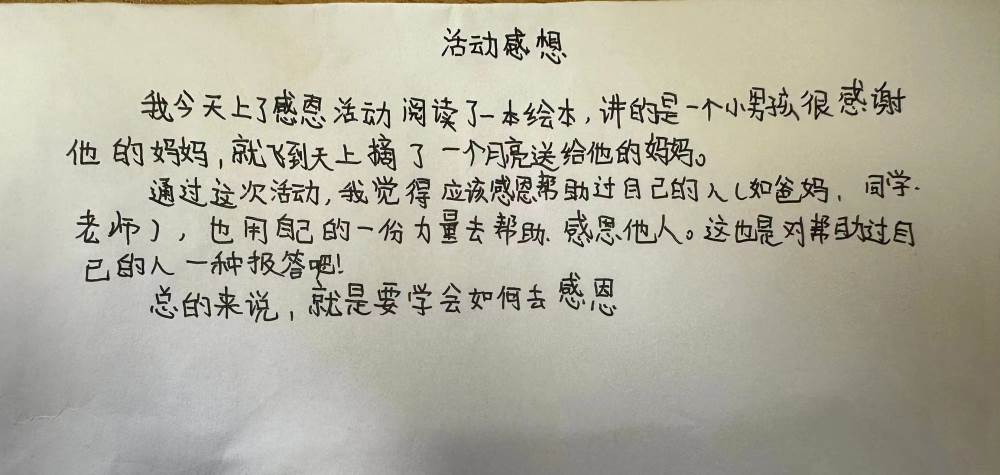 活动感想
我今天上了感恩活动阅读了一本绘本,讲的是一个小男孩很感谢
他的妈妈,就飞到天上摘了一个月亮送给他的妈妈。
通过这次活动,我觉得应该感恩帮助过自己的人(如爸妈、同学、
老师),也用自己的一份力量去帮助、感恩他人。这也是对帮助过自
己的人一种报答吧!
总的来说,就是要学会如何去感恩